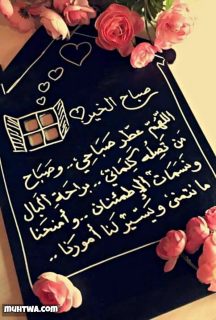 صباح الخير
اللهم عطر صباحي .. وصباح
من تصله كلماتي .. براحة البال
ونسمات الإطمئنان .. وامنحنا
ما نتمنى ويسّر لنا أمورنا ..
MUHTWA.COM